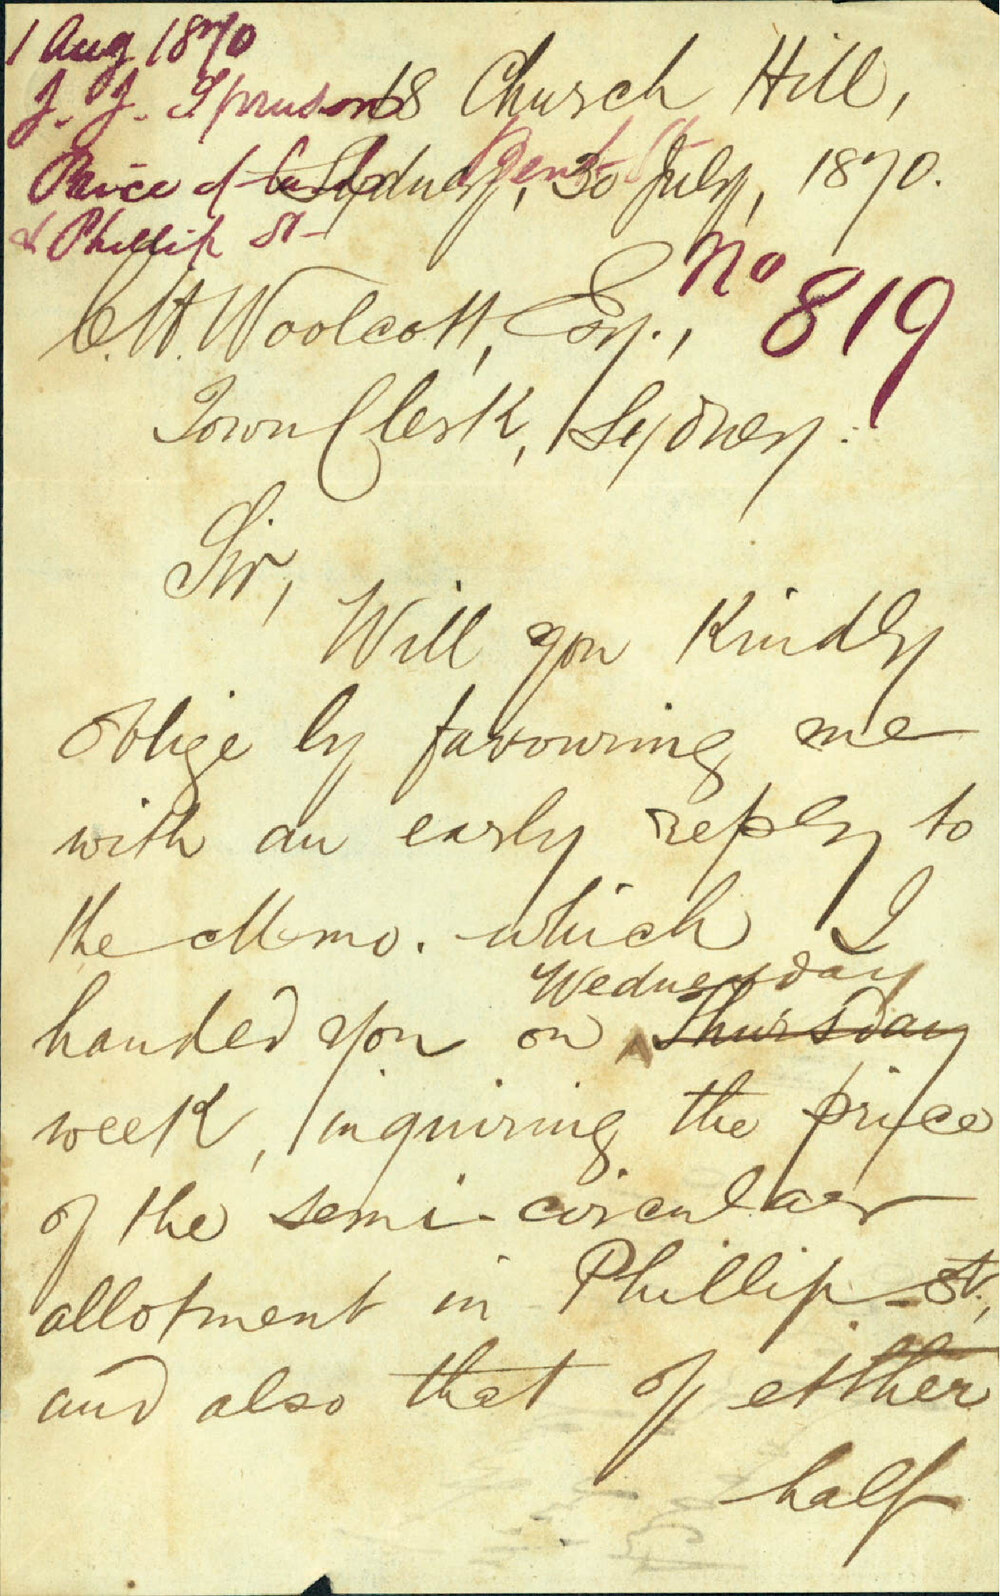 1 Aug 1870
J. J. Spruson
Price of land Bent St
& Phillip St
No 819
18 Church Hill,
Sydney, 30 July, 1870.
C. H. Woolcott, Esq.,
Town Clerk, Sydney.
Sir,
Will you kindly
oblige by favouring me
with an early reply to
the Memo. which I
Wednesday
handed you on ~~Thursday~~
week, inquiring the price
of the semi-circular
allotment in Phillip St.,
and also that of either
half